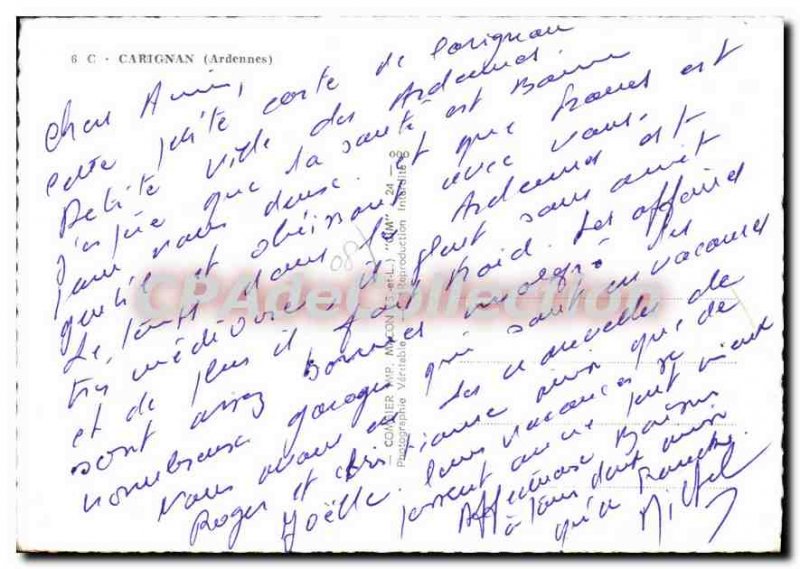 6 C - CARIGNAN (Ardennes)
Chers Amis,
cette petite carte de Carignan
Petite ville des Ardennes.
J'espère que la santé est Bonne
pour vous deux. et que Franck est
gentil et obéissant avec vous.
Le temps dans les Ardennes est
très médiocre, il pleut sans arrêt
et de plus il fait froid. Les affaires
sont assez Bonnes malgré les
nombreux garages qui sont en vacances
Nous avons eu des nouvelles de
Roger et Christiane ainsi que de
Joëlle. leurs vacances se
passent on ne peut mieux
Affectueux Baisers
à tous deux ainsi
qu'à Franck.
Michel
087
— COMBIER IMP. MACON (S.-et-L.) "CIM" 24 — 900
Photographie Véritable — Reproduction Interdite
CPAdeCollection.com